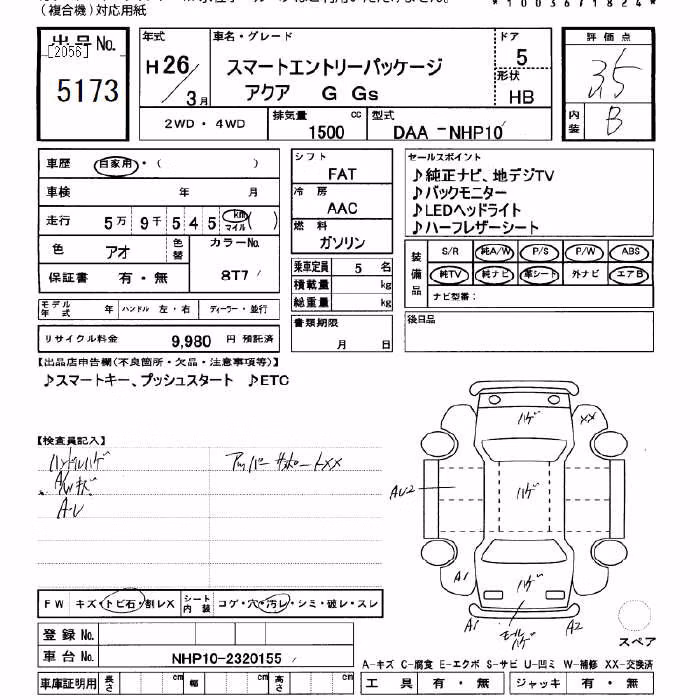 (複合機)対応用紙
*1003671824*
出品No.
[2056]
5173
年式
H26/3月
車名・グレード
スマートエントリーパッケージ
アクア G Gs
ドア
5
形状
HB
評価点
3.5
内装
B
2WD・4WD
排気量
1500 cc
型式
DAA-NHP10
車歴 自家用・( )
車検 年 月
走行 5万 9千 5 4 5 km マイル ( )
色 アオ 色替
カラーNo.
8T7
保証書 有・無
モデル年式 年 ハンドル 左・右 ディーラー・並行
リサイクル料金 9,980 円 預託済
シフト
FAT
冷房
AAC
燃料
ガソリン
乗車定員 5 名
積載量 kg
総重量 kg
書類期限
月 日
セールスポイント
♪純正ナビ、地デジTV
♪バックモニター
♪LEDヘッドライト
♪ハーフレザーシート
装備品
S/R 純A/W P/S P/W ABS
純TV 純ナビ 革シート 外ナビ エアB
ナビ型番:
後日品
【出品店申告欄(不良箇所・欠品・注意事項等)】
♪スマートキー、プッシュスタート ♪ETC
【検査員記入】
ハンドルハゲ
A/Wキズ
アッパーサポートXX
ハゲ
XX
AU2
ハゲ
A1
ハゲ
A1
モールハゲ
A2
スペア
FW キズ・トビ石・割レX
シート内装 コゲ・穴・汚レ・シミ・破レ・スレ
登録No.
車台No. NHP10-2320155
車庫証明用 長さ cm 幅 cm 高さ cm
A-キズ C-腐食 E-エクボ S-サビ U-凹ミ W-補修 XX-交換済
工具 有・無 ジャッキ 有・無